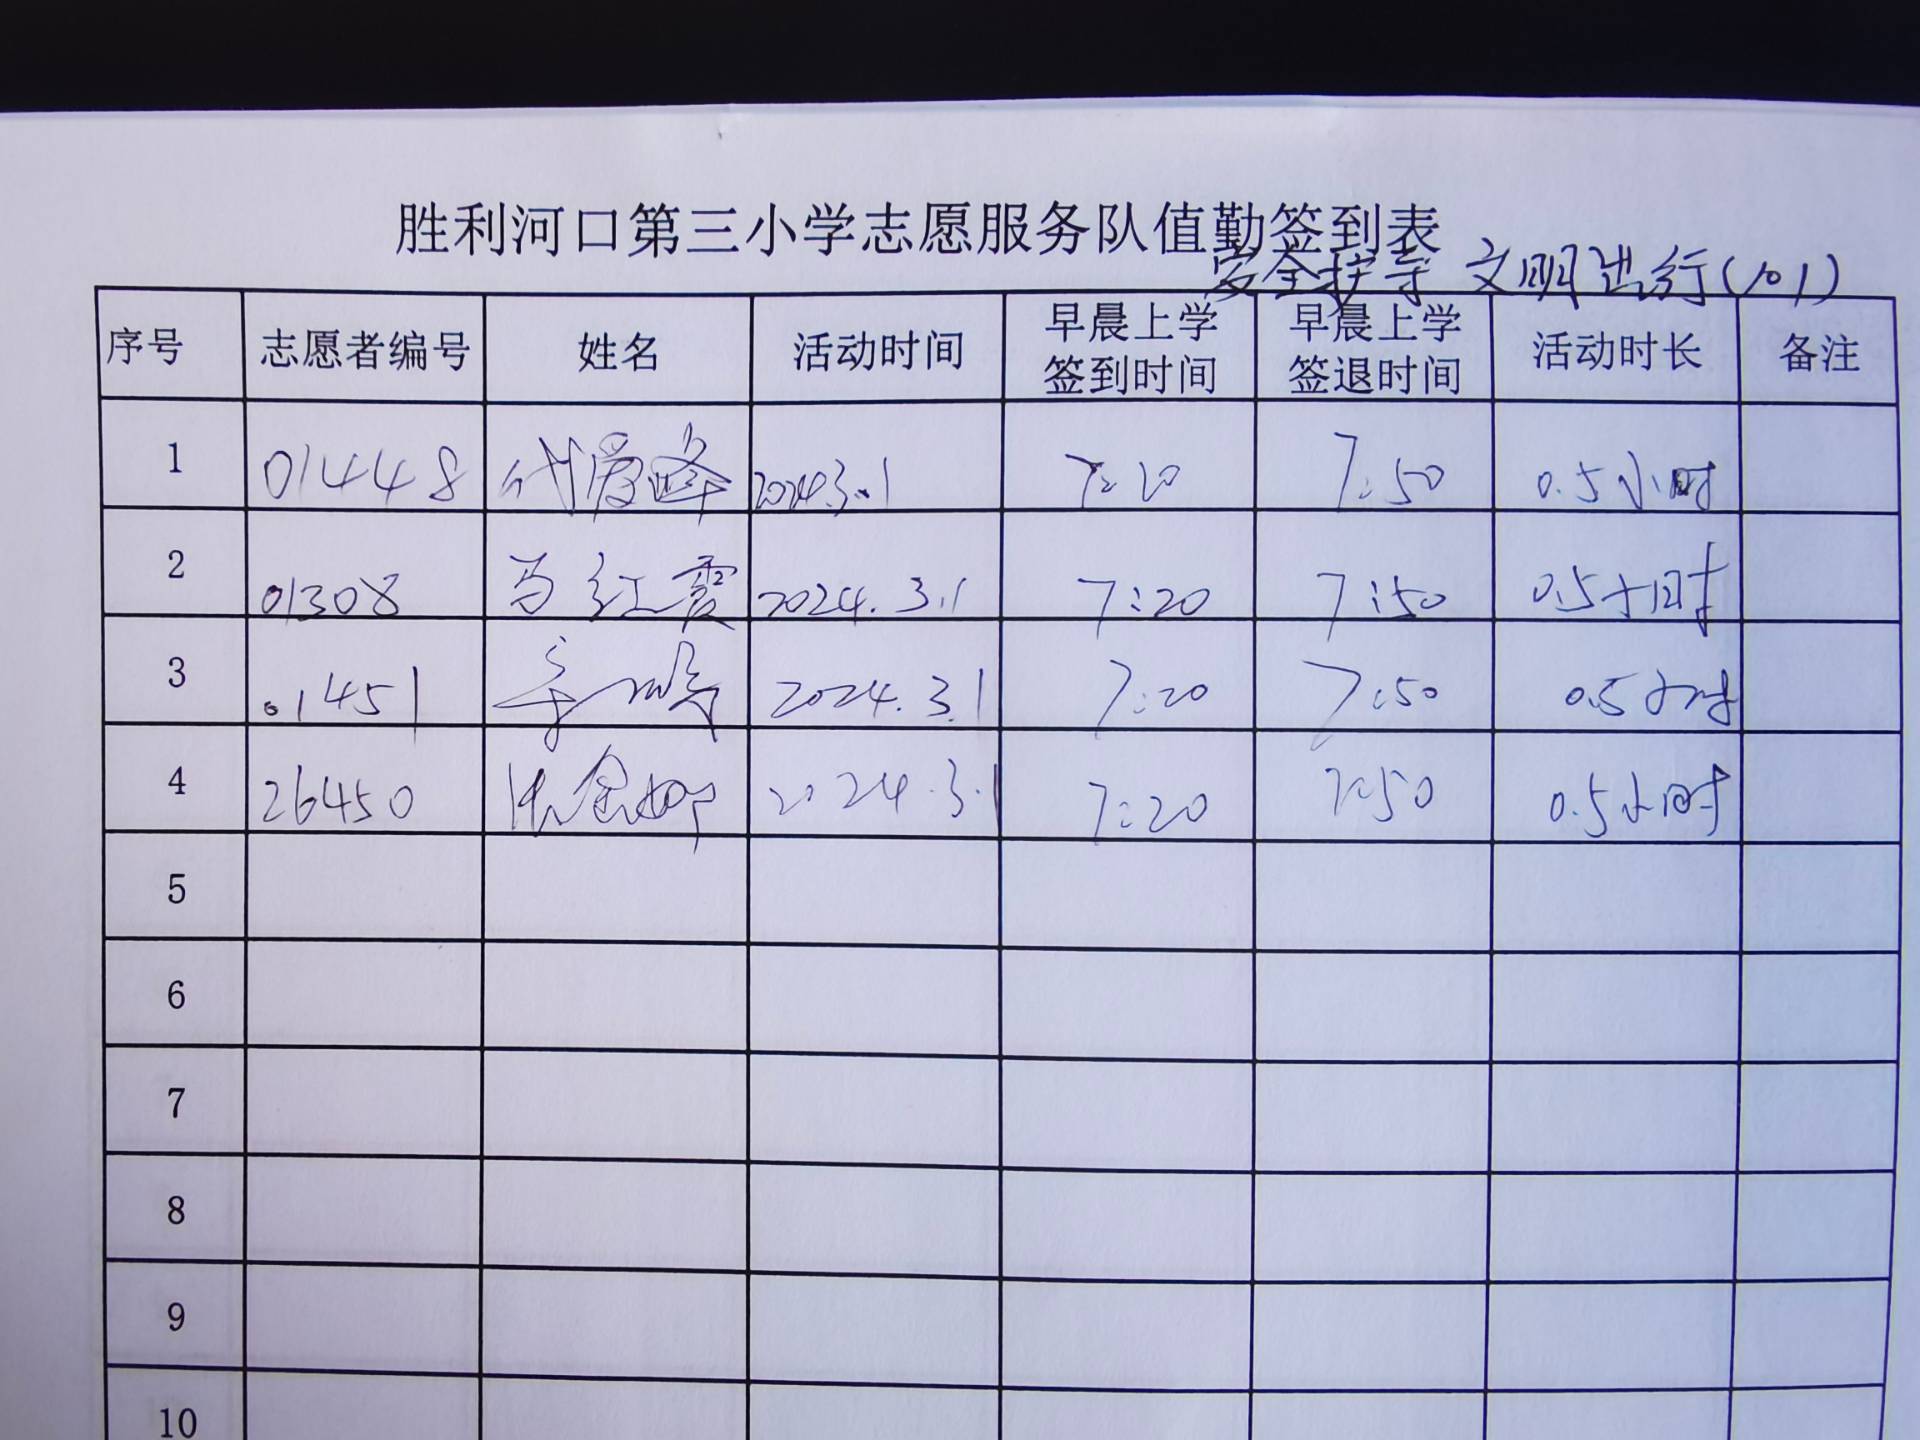 胜利河口第三小学志愿服务队值勤签到表
安全护学 文明出行(101)
序号 志愿者编号 姓名 活动时间 早晨上学签到时间 早晨上学签退时间 活动时长 备注
1 01448 代爱峰 2024.3.1 7:20 7:50 0.5小时
2 01308 马红霞 2024.3.1 7:20 7:50 0.5小时
3 01451 2024.3.1 7:20 7:50 0.5小时
4 26450 2024.3.1 7:20 7:50 0.5小时
5
6
7
8
9
10